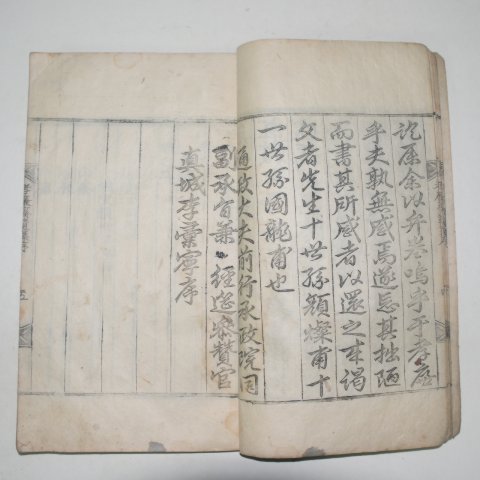 託屬余以弁卷嗚乎于孝庶
乎夫孰無感焉遂忘其拙陋
而書其所感者以還之來謁
文者先生十世孫顔燦甫十
一世孫國龍甫也
通政大夫前行承政院同
副承旨兼 經筵參贊官
眞城李彙寧序